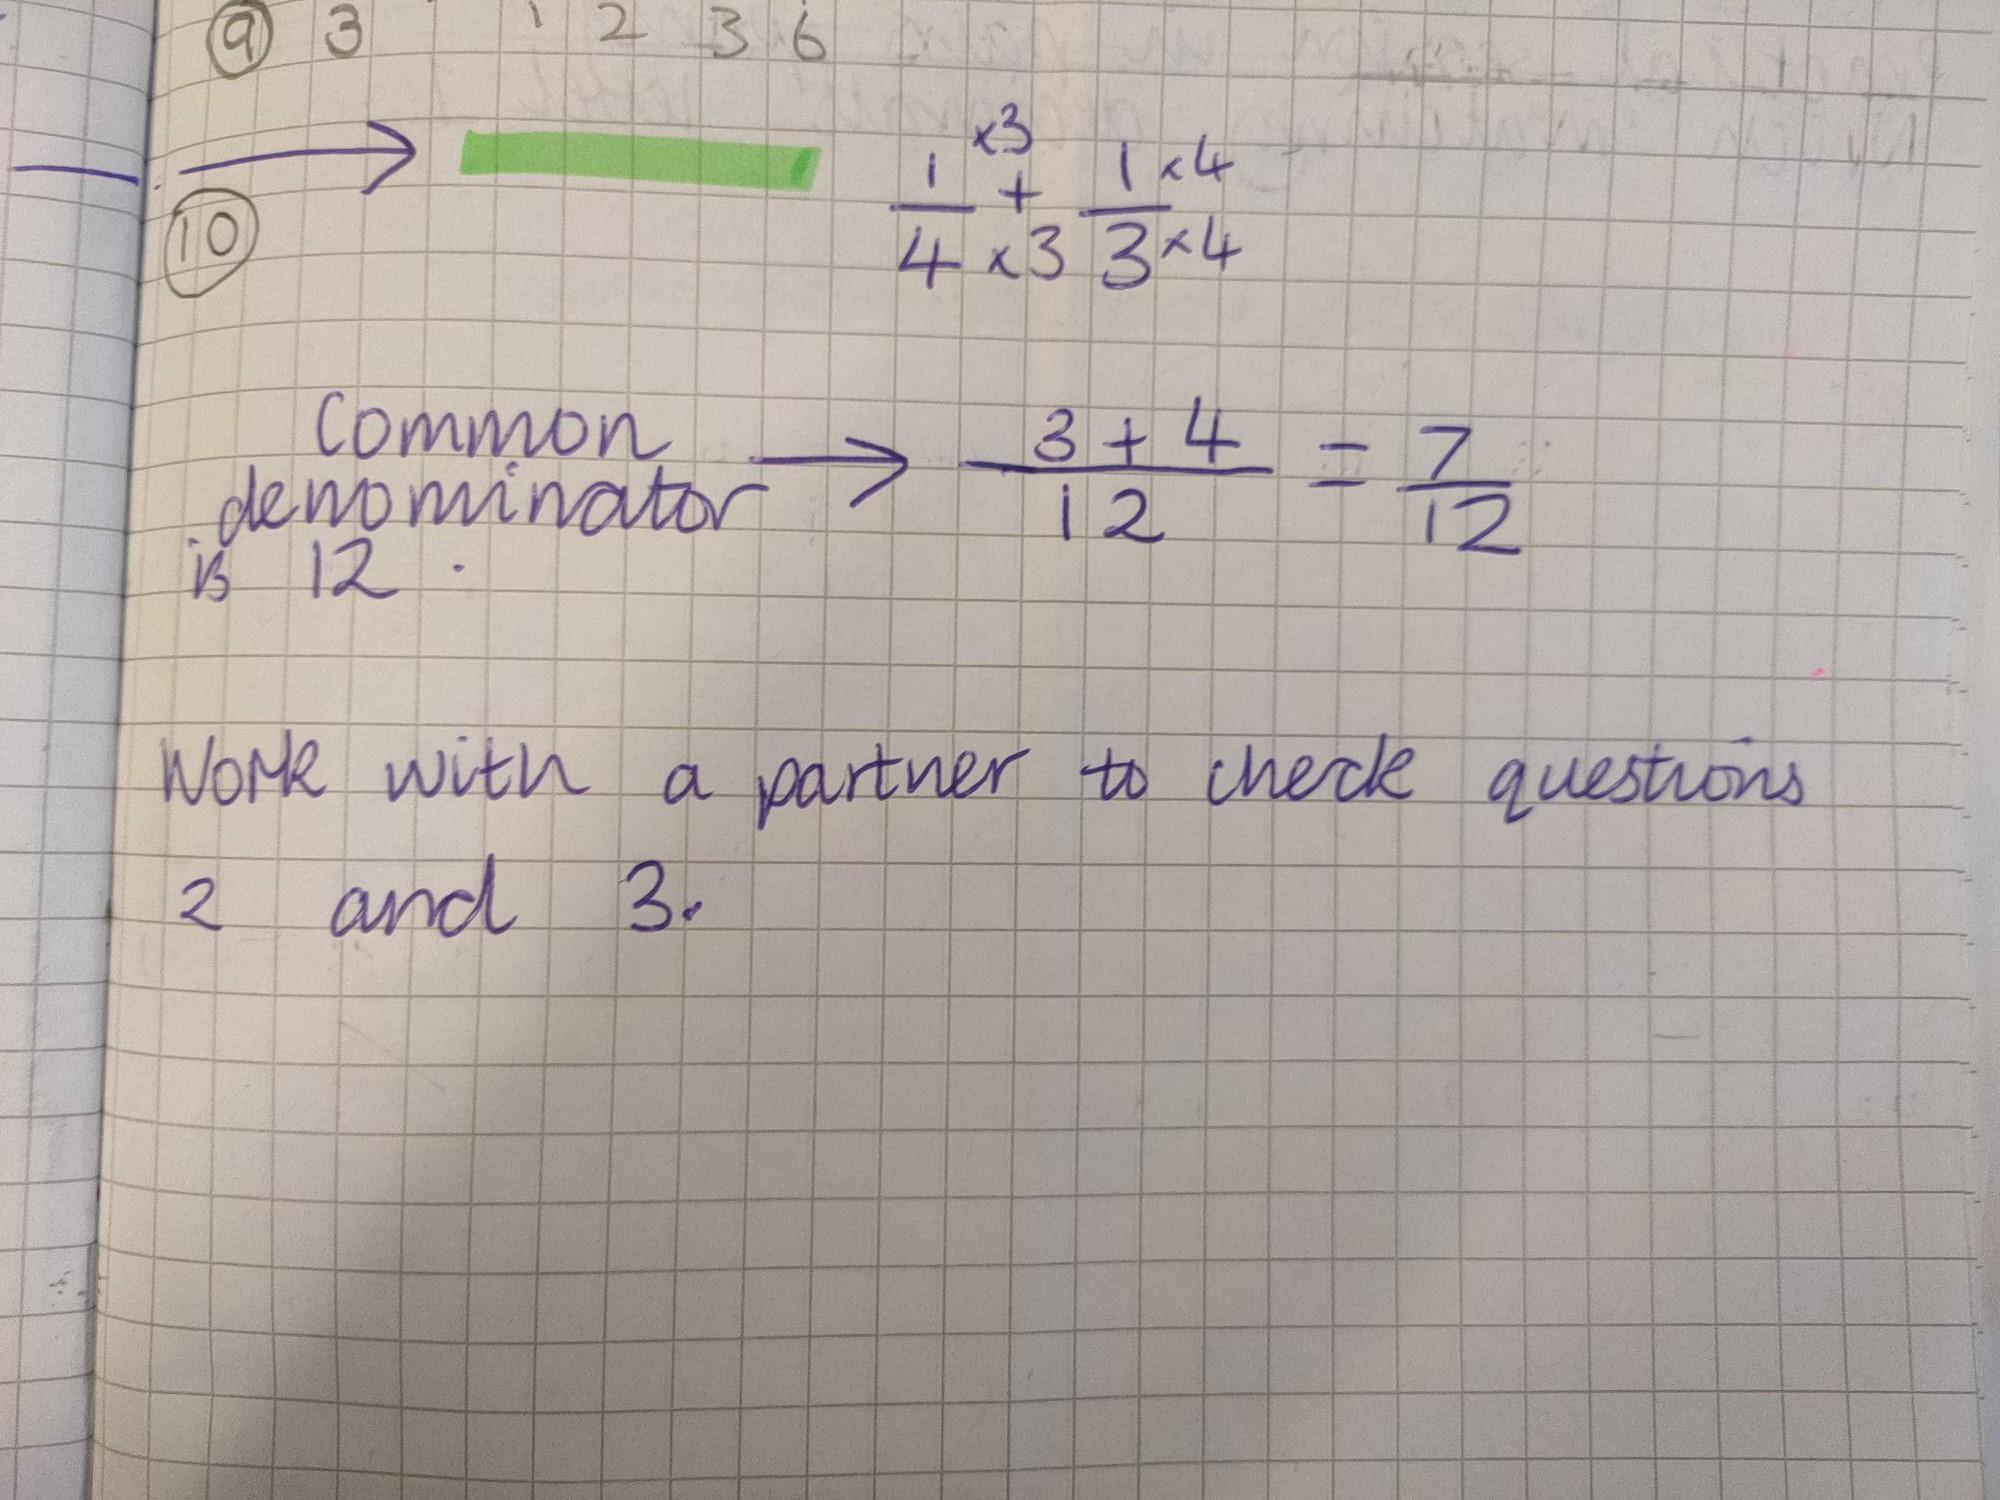 9 3 1 2 3 6
10
1/4 ×3/×3 + 1/3 ×4/×4
Common
denominator → 3 + 4/12 = 7/12
is 12.
Work with a partner to check questions
2 and 3.